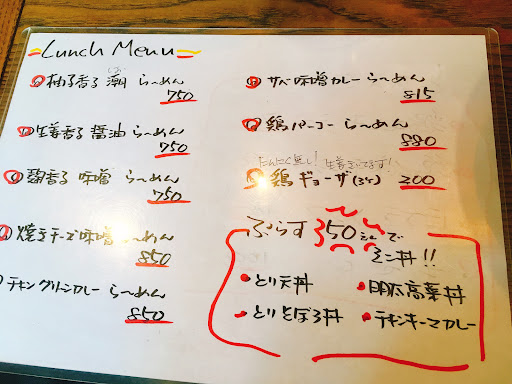 Lunch Menu
柚子香る 潮 らーめん
しお
750
生姜香る 醤油 らーめん
750
麹香る 味噌 らーめん
750
焼きチーズ味噌らーめん
850
チキングリーンカレー らーめん
850
サバ味噌カレー らーめん
815
鶏パーコー らーめん
880
にんにく無し! 生姜きいてます!
鶏 ギョーザ (3ケ) 200
ぷらす 350えんで
ミニ丼!!
・とり天丼
・明太高菜丼
・とりそぼろ丼
・チキンキーマカレー